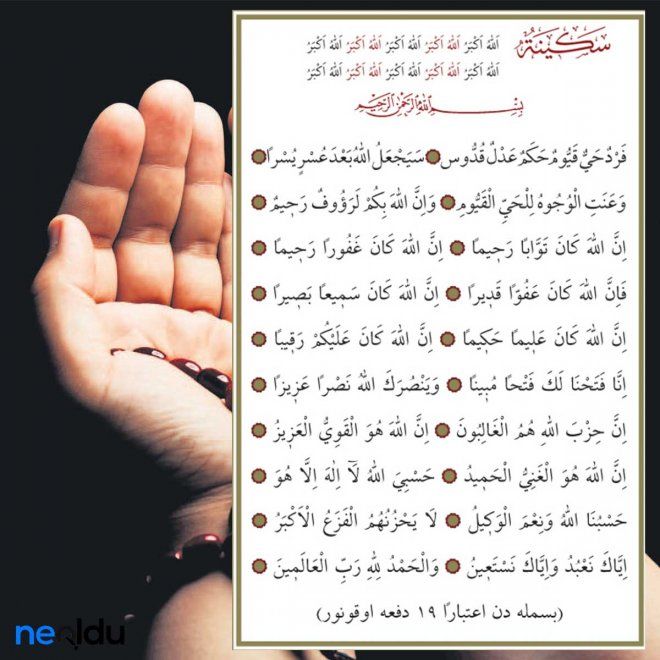 سَكِينَةْ
اَللهُ اَكْبَرُ اَللهُ اَكْبَرُ اَللهُ اَكْبَرُ اَللهُ اَكْبَرُ اَللهُ اَكْبَرُ
اَللهُ اَكْبَرُ اَللهُ اَكْبَرُ اَللهُ اَكْبَرُ اَللهُ اَكْبَرُ اَللهُ اَكْبَرُ
بِسْمِ اللهِ الرَّحْمٰنِ الرَّحِيمِ
فَرْدٌ حَيٌّ قَيُّومٌ حَكَمٌ عَدْلٌ قُدُّوس سَيَجْعَلُ اللهُ بَعْدَ عُسْرٍ يُسْرًا
وَعَنَتِ الْوُجُوهُ لِلْحَيِّ الْقَيُّومِ وَاِنَّ اللهَ بِكُمْ لَرَؤُوفٌ رَحِيمٌ
اِنَّ اللهَ كَانَ تَوَّابًا رَحِيمًا اِنَّ اللهَ كَانَ غَفُورًا رَحِيمًا
فَاِنَّ اللهَ كَانَ عَفُوًّا قَدِيرًا اِنَّ اللهَ كَانَ سَمِيعًا بَصِيرًا
اِنَّ اللهَ كَانَ عَلِيمًا حَكِيمًا اِنَّ اللهَ كَانَ عَلَيْكُمْ رَقِيبًا
اِنَّا فَتَحْنَا لَكَ فَتْحًا مُبِينًا وَيَنْصُرَكَ اللهُ نَصْرًا عَزِيزًا
اِنَّ حِزْبَ اللهِ هُمُ الْغَالِبُونَ اِنَّ اللهَ هُوَ الْقَوِيُّ الْعَزِيزُ
اِنَّ اللهَ هُوَ الْغَنِيُّ الْحَمِيدُ حَسْبِيَ اللهُ لَٓا اِلٰهَ اِلَّا هُوَ
حَسْبُنَا اللهُ وَنِعْمَ الْوَكِيلُ لَا يَحْزُنُهُمُ الْفَزَعُ الْاَكْبَرُ
اِيَّاكَ نَعْبُدُ وَاِيَّاكَ نَسْتَعِينُ وَالْحَمْدُ لِلهِ رَبِّ الْعَالَمِينَ
(بسمله دن اعتبارًا ١٩ دفعه اوقونور)
neoldu